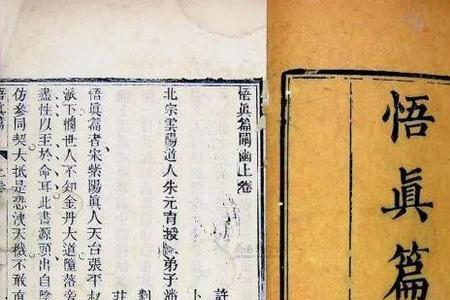 悟眞篇
悟眞篇闡幽上卷
許
卜
北宗雲陽道人朱元育授 弟子潘
劉
莊
悟眞篇者宋紫陽眞人天台張平叔
派下憫世人不知金丹大道墮落旁
盡性以至於命耳此書源頭出自陰
仿參同契大抵是恐洩天機不敢直
悟眞篇